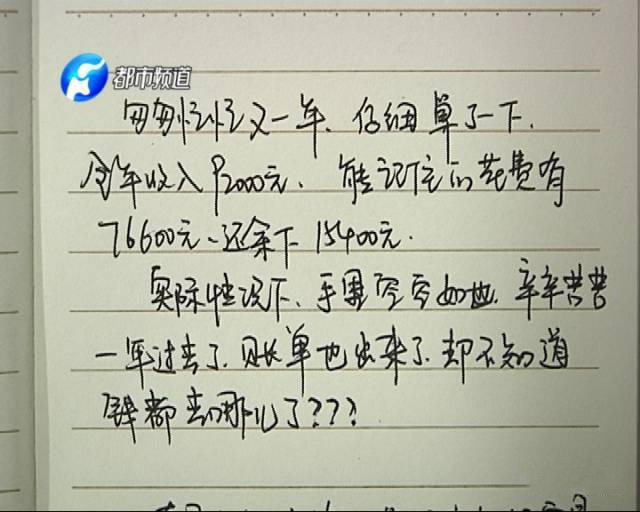 都市频道
匆匆忙忙又一年、仔细算了一下、
今年收入92000元、能记住的花费有
76600元、还余下15400元.
实际情况下、手里空空如也、辛辛苦苦
一年过去了、账单也出来了、却不知道
钱都去哪儿了???